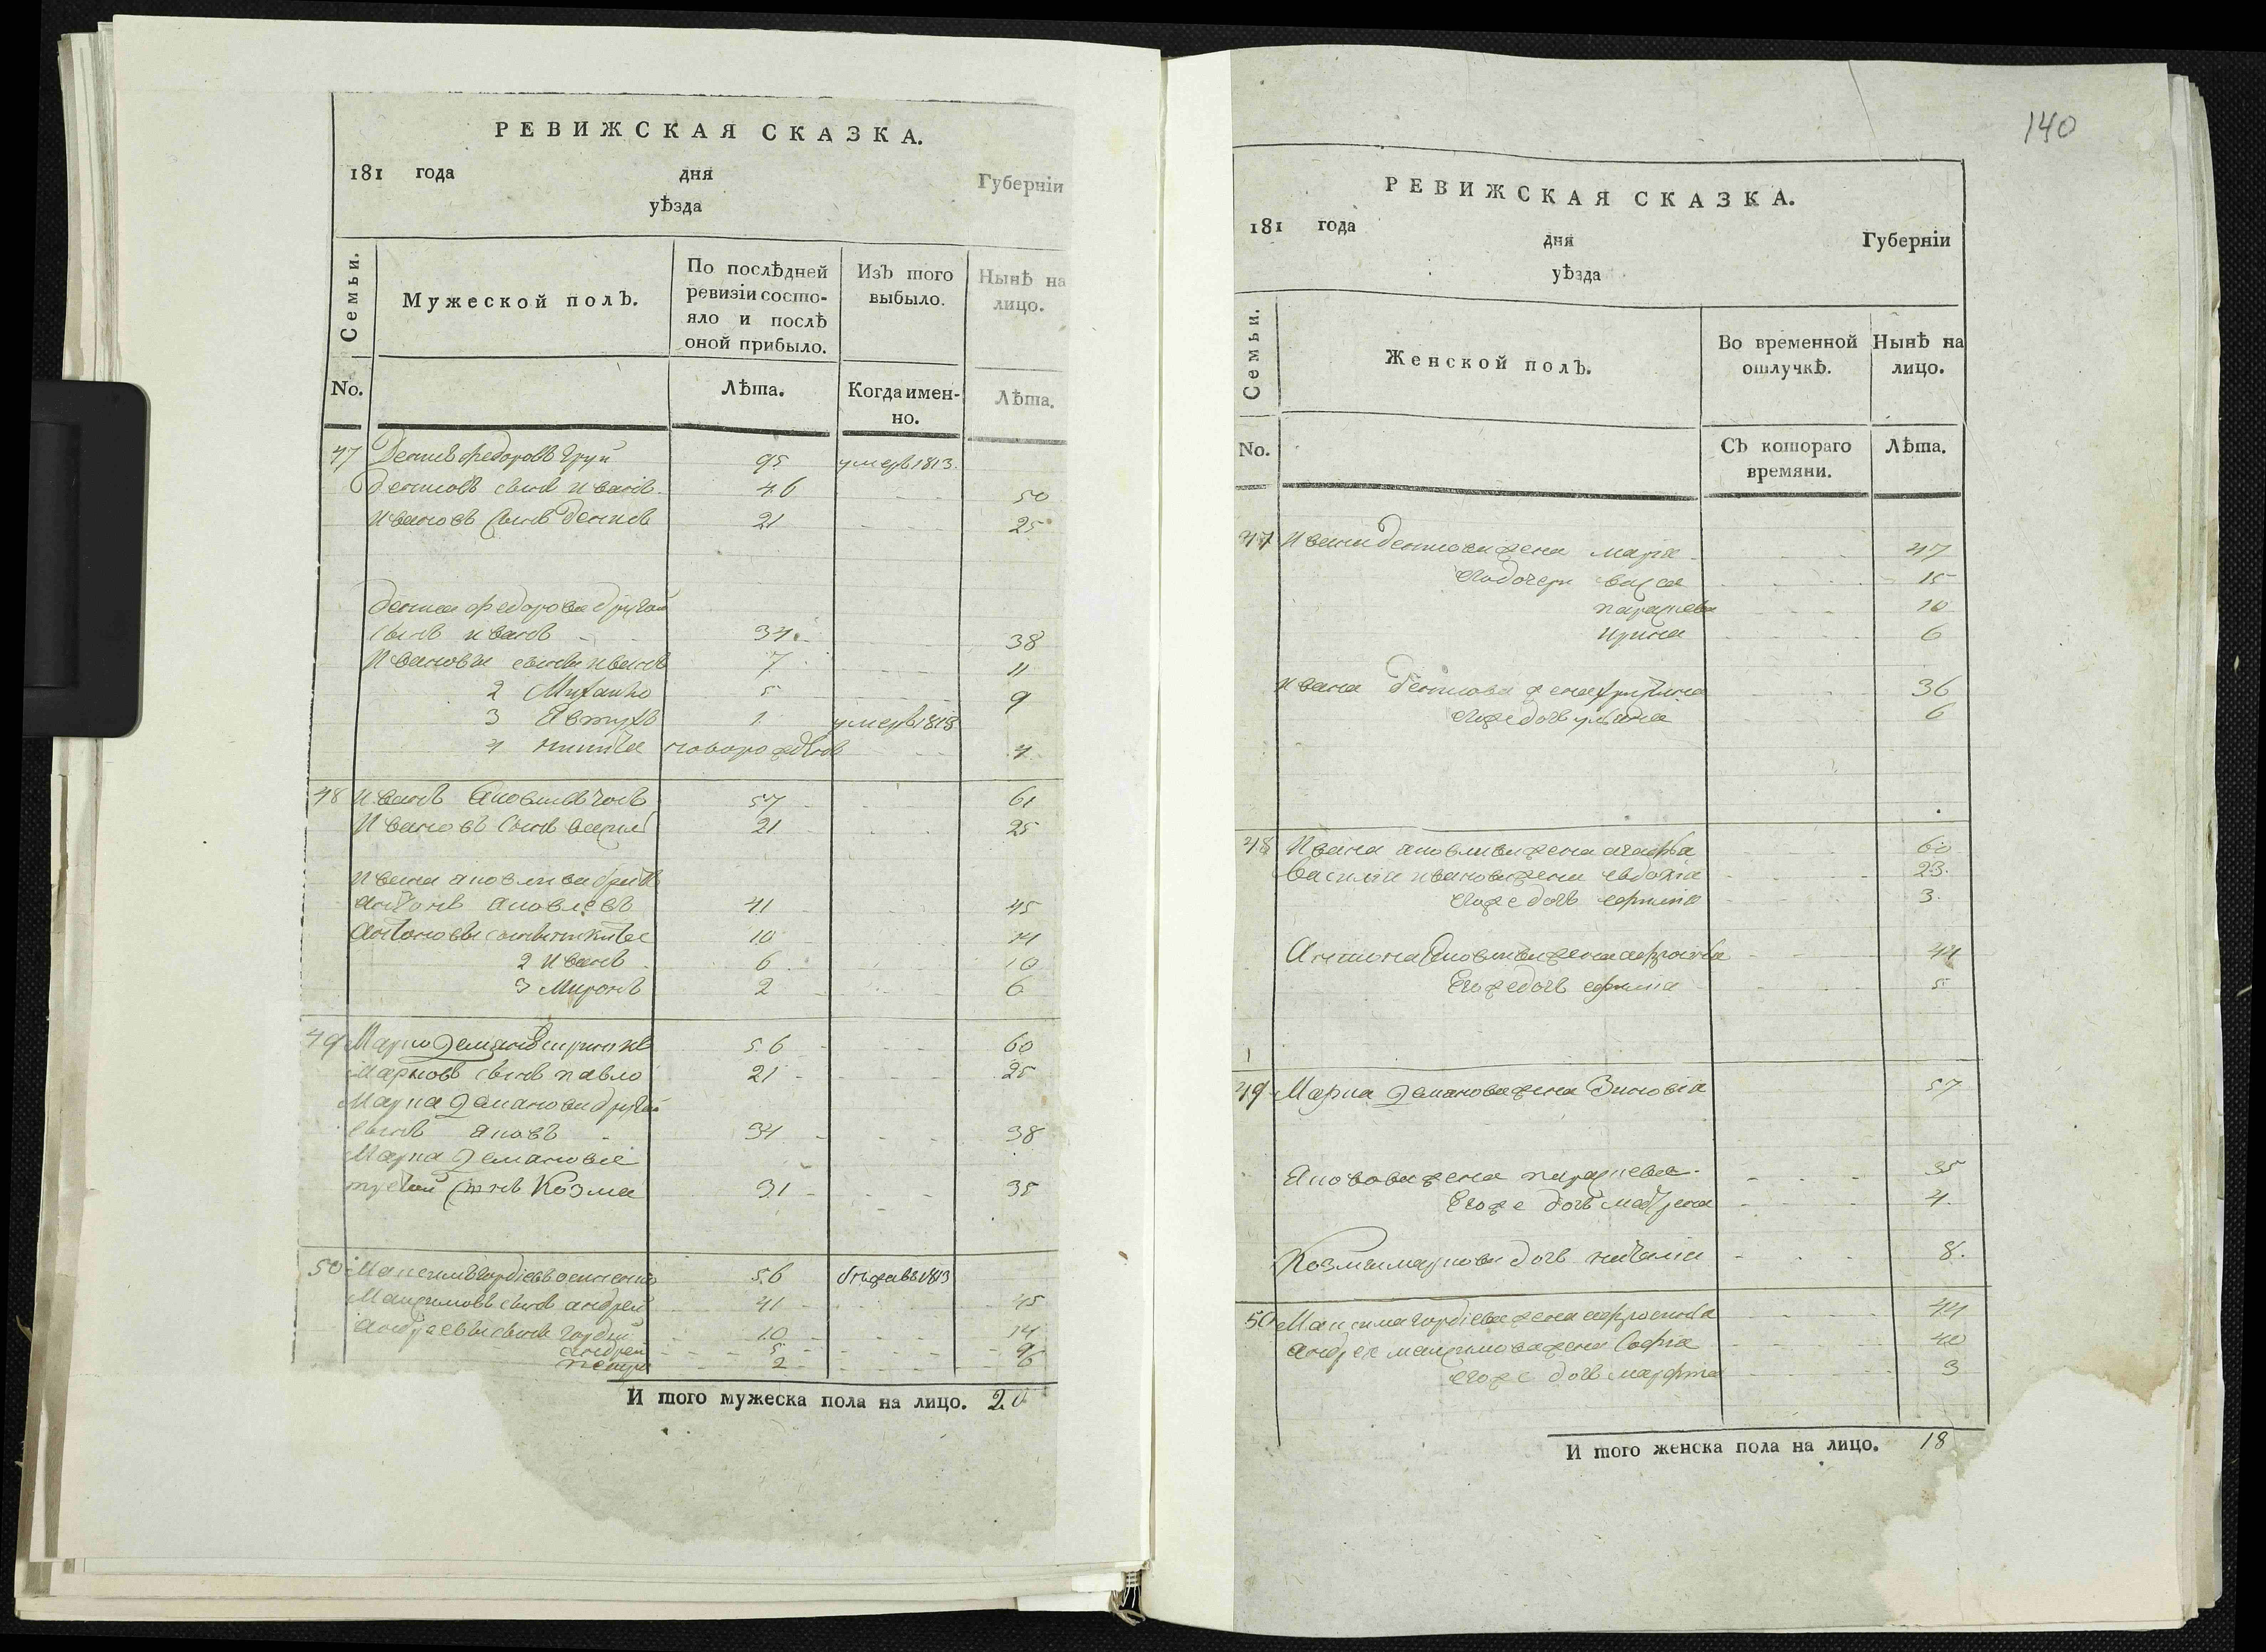 РЕВИЖСКАЯ СКАЗКА.
181 года дня Губерніи
уѣзда
Семьи. Мужеской полъ. По послѣдней ревизіи состояло и послѣ оной прибыло. Изъ того выбыло. Нынѣ на лицо.
No. Лѣта. Когда именно. Лѣта.
47 Денисъ Федоровъ 95 умеръ 1813.
Денисовъ сынъ Иванъ 46 50
Ивановъ сынъ Денисъ 21 25
Дениса Федорова другой
сынъ Иванъ 34. 38
Ивановы сыны Иванъ 7 11
2 Михайло 5 9
3 Явтухъ 1 умеръ 1813
4 Никита новорожденъ 4
48 Иванъ Яковлевъ 57 61
Ивановъ сынъ Василий 21 25
Ивана Яковлева братъ
Антонъ Яковлевъ 41 45
Антоновы сыны Никита 10 14
2 Иванъ 6 10
3 Миронъ 2 6
49 Марко Демяновъ 56 60
Марковъ сынъ Павло 21 25
Марка Демянова другой
сынъ Яковъ 34 38
Марка Демянова
третий сынъ Козма 31 35
50 Максимъ Гордіевъ 56 1813
Максимовъ сынъ Андрей 41 45
Андреевы сыны Гордей 10 14
Андрей 5 9
Петръ 2 6
И того мужеска пола на лицо. 20
140
РЕВИЖСКАЯ СКАЗКА.
181 года дня Губерніи
уѣзда
Семьи. Женской полъ. Во временной отлучкѣ. Нынѣ на лицо.
No. Съ котораго времяни. Лѣта.
47 Ивана Денисова жена Марія 47
его дочери Васса 15
Параскева 10
Ирина 6
Ивана Денисова жена 36
его же дочь Уляна 6
48 Ивана Яковлева жена Агафья 60
Василія Иванова жена Евдокія 23.
его же дочь Ефимія 3.
Антона Яковлева жена 44
Его же дочь 5
49 Марка Демянова жена Зиновія 57
Якова жена Параскева 35
Его же дочь Матрена 4.
Козмы Маркова дочь Наталія 8.
50 Максима Гордіева жена 44
Андрея Максимова жена Софія 40
его же дочь Марфа 3
И того женска пола на лицо. 18